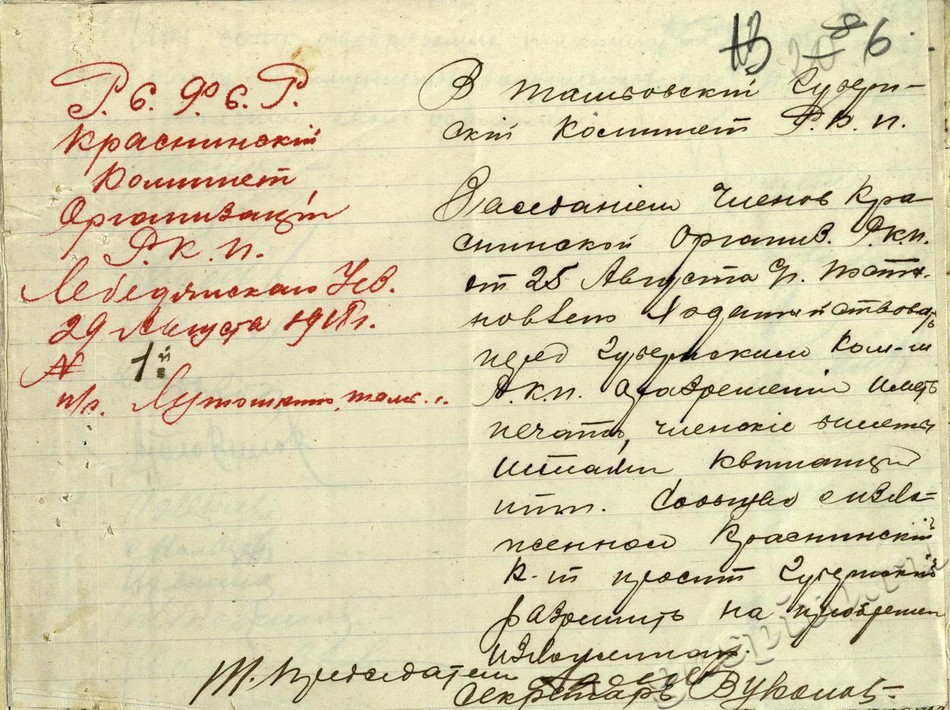 Р. С. Ф. С. Р.
Краснинскій
Комитет
Организаціи
Р. К. П.
Лебедянскаго Уез.
29 Августа 1918 г.
№ 1й
п/о.
13 20 86.
В Тамбовскій Губерн-
скій Комитет Р. К. П.
Заседанием членов Кра-
снинской Организ. Р.К.П.
от 25 Августа с/г. Поста-
новлено Ходатайствовать
перед Губернским Ком-м
Р.К.П. о разрешеніи иметь
печать, членскіе билеты
штампы квитанціи
и т.п. Сообщая о изло-
женном Краснинскій
К-т просит Губернскій
разрешить на пріобретеніе
изложенных.
Т. Председателя
Секретарь